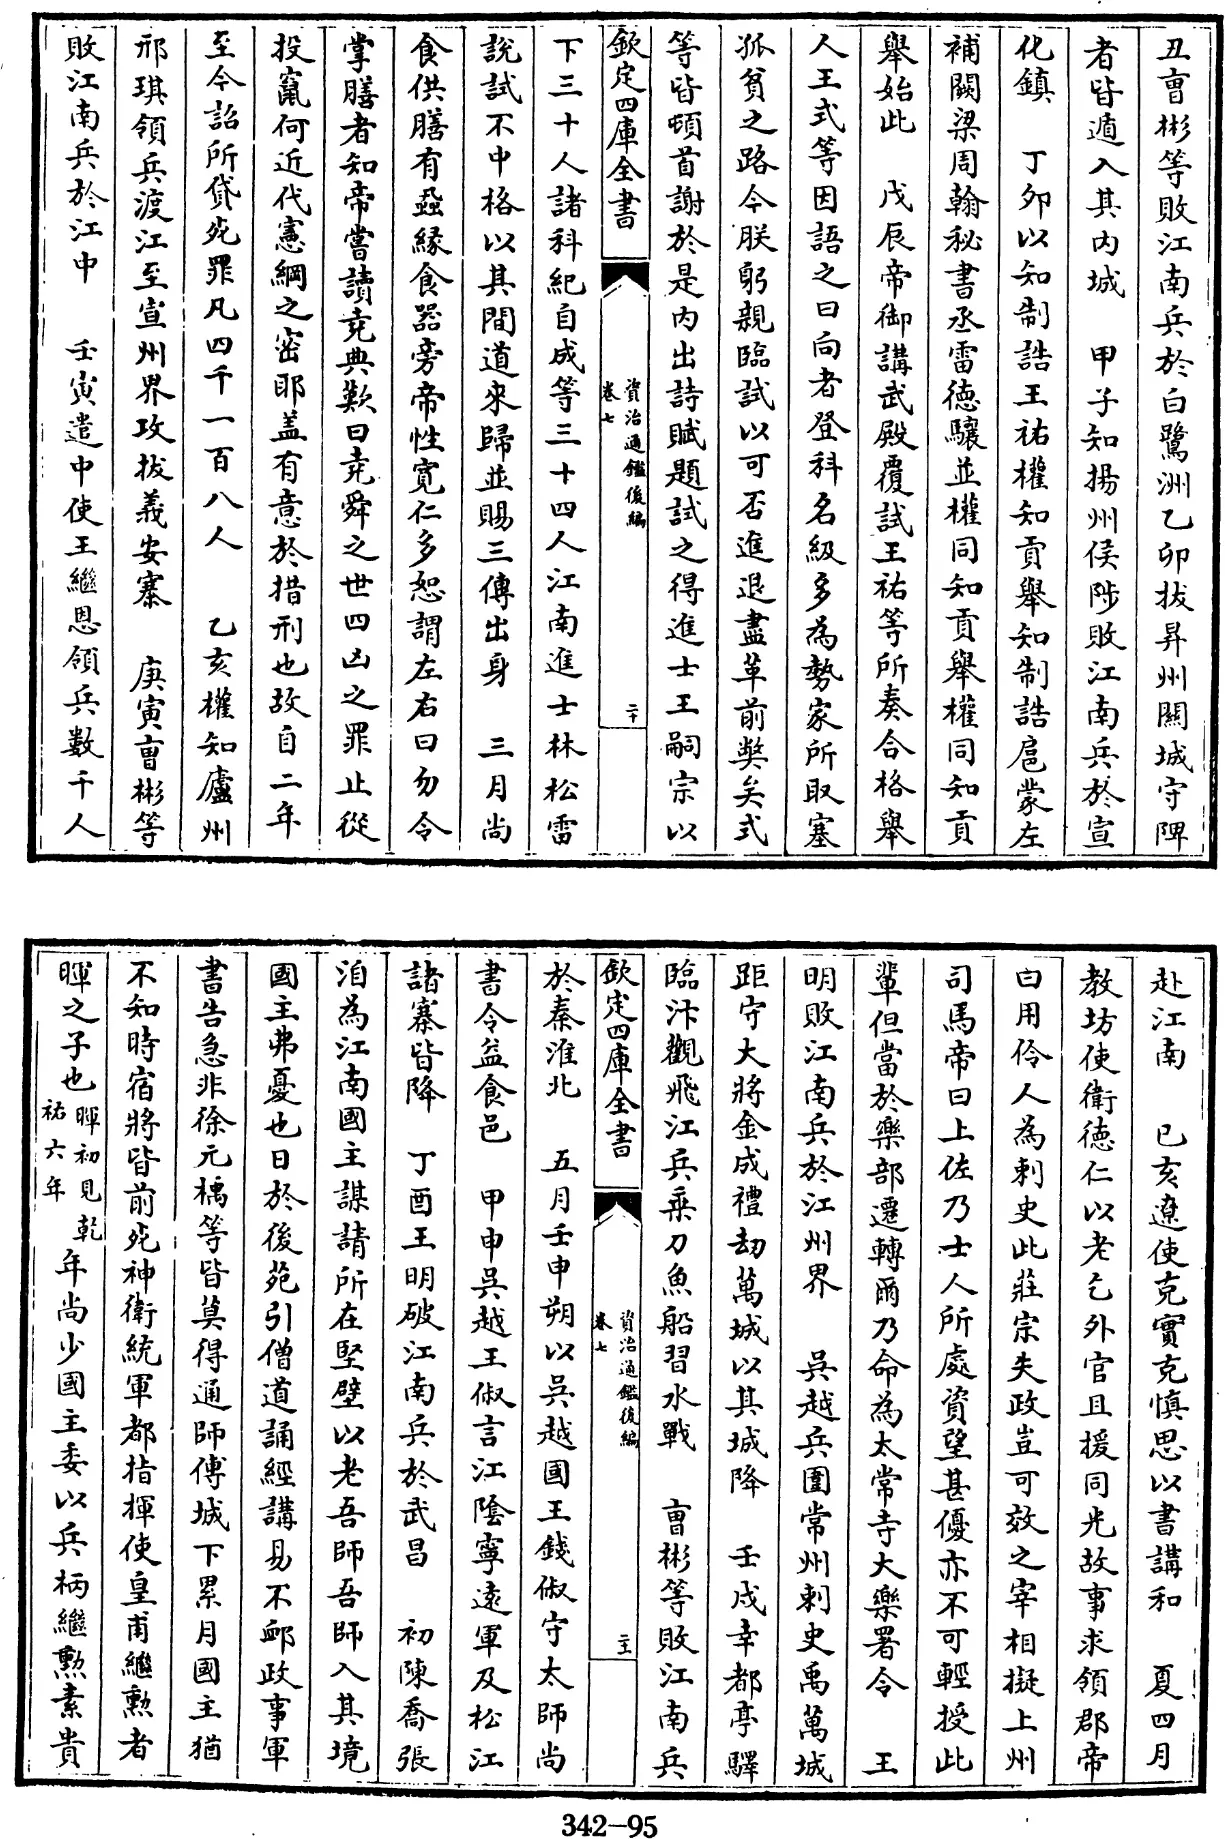 丑曹彬等敗江南兵於白鷺洲乙卯拔昇州關城守陴
者皆遁入其内城　甲子知揚州侯陟敗江南兵於宣
化鎮　丁夘以知制誥王祐權知貢舉知制誥扈蒙左
補闕梁周翰秘書丞雷徳驤並權同知貢舉權同知貢
舉始此　戊辰帝御講武殿覆試王祐等所奏合格舉
人王式等因語之曰向者登科名級多為勢家所取塞
孤貧之路今朕躬親臨試以可否進退盡革前獘矣式
等皆頓首謝於是内出詩賦題試之得進士王嗣宗以
欽定四庫全書
資治通鑑後編
卷七
二十
下三十人諸科紀自成等三十四人江南進士林松雷
說試不中格以其間道來歸並賜三傳出身　三月尚
食供膳有蝨縁食器旁帝性寛仁多恕謂左右曰勿令
掌膳者知帝嘗讀堯典歎曰堯舜之世四凶之罪止從
投竄何近代憲網之密耶盖有意於措刑也故自二年
至今詔所貸死罪凡四千一百八人　乙亥權知廬州
邢琪領兵渡江至宣州界攻拔義安寨　庚寅曹彬等
敗江南兵於江中　壬寅遣中使王繼恩領兵數千人
赴江南　已亥遼使克實克慎思以書講和　夏四月
教坊使衛徳仁以老乞外官且援同光故事求領郡帝
曰用伶人為刺史此莊宗失政豈可效之宰相擬上州
司馬帝曰上佐乃士人所處資望甚優亦不可輕授此
輩但當於樂部遷轉爾乃命為太常寺大樂署令　王
明敗江南兵於江州界　吳越兵圍常州刺史禹萬城
距守大將金成禮劫萬城以其城降　壬戌幸都亭驛
臨汴觀飛江兵乘刀魚船習水戰　曹彬等敗江南兵
欽定四庫全書
資治通鑑後編
卷七
二十一
於秦淮北　五月壬申朔以吳越國王錢俶守太師尚
書令益食邑　甲申吳越王俶言江陰寧逺軍及松江
諸寨皆降　丁酉王明破江南兵於武昌　初陳喬張
洎為江南國主謀請所在堅壁以老吾師吾師入其境
國主弗憂也日於後苑引僧道誦經講易不䘏政事軍
書告急非徐元楀等皆莫得通師傅城下累月國主猶
不知時宿將皆前死神衛統軍都指揮使皇甫繼勲者
暉之子也暉初見乾祐六年年尚少國主委以兵柄繼勲素貴
342-95